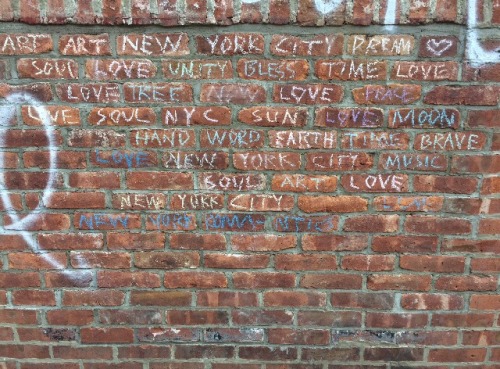 ART ART NEW YORK CITY DREAM
SOUL LOVE UNITY BLESS TIME LOVE
LOVE TREE NEW LOVE PEACE
LOVE SOUL NYC SUN LOVE MOON
HAND WORD EARTH TIME BRAVE
LOVE NEW YORK CITY MUSIC
SOUL ART LOVE
NEW YORK CITY
NEW YORK